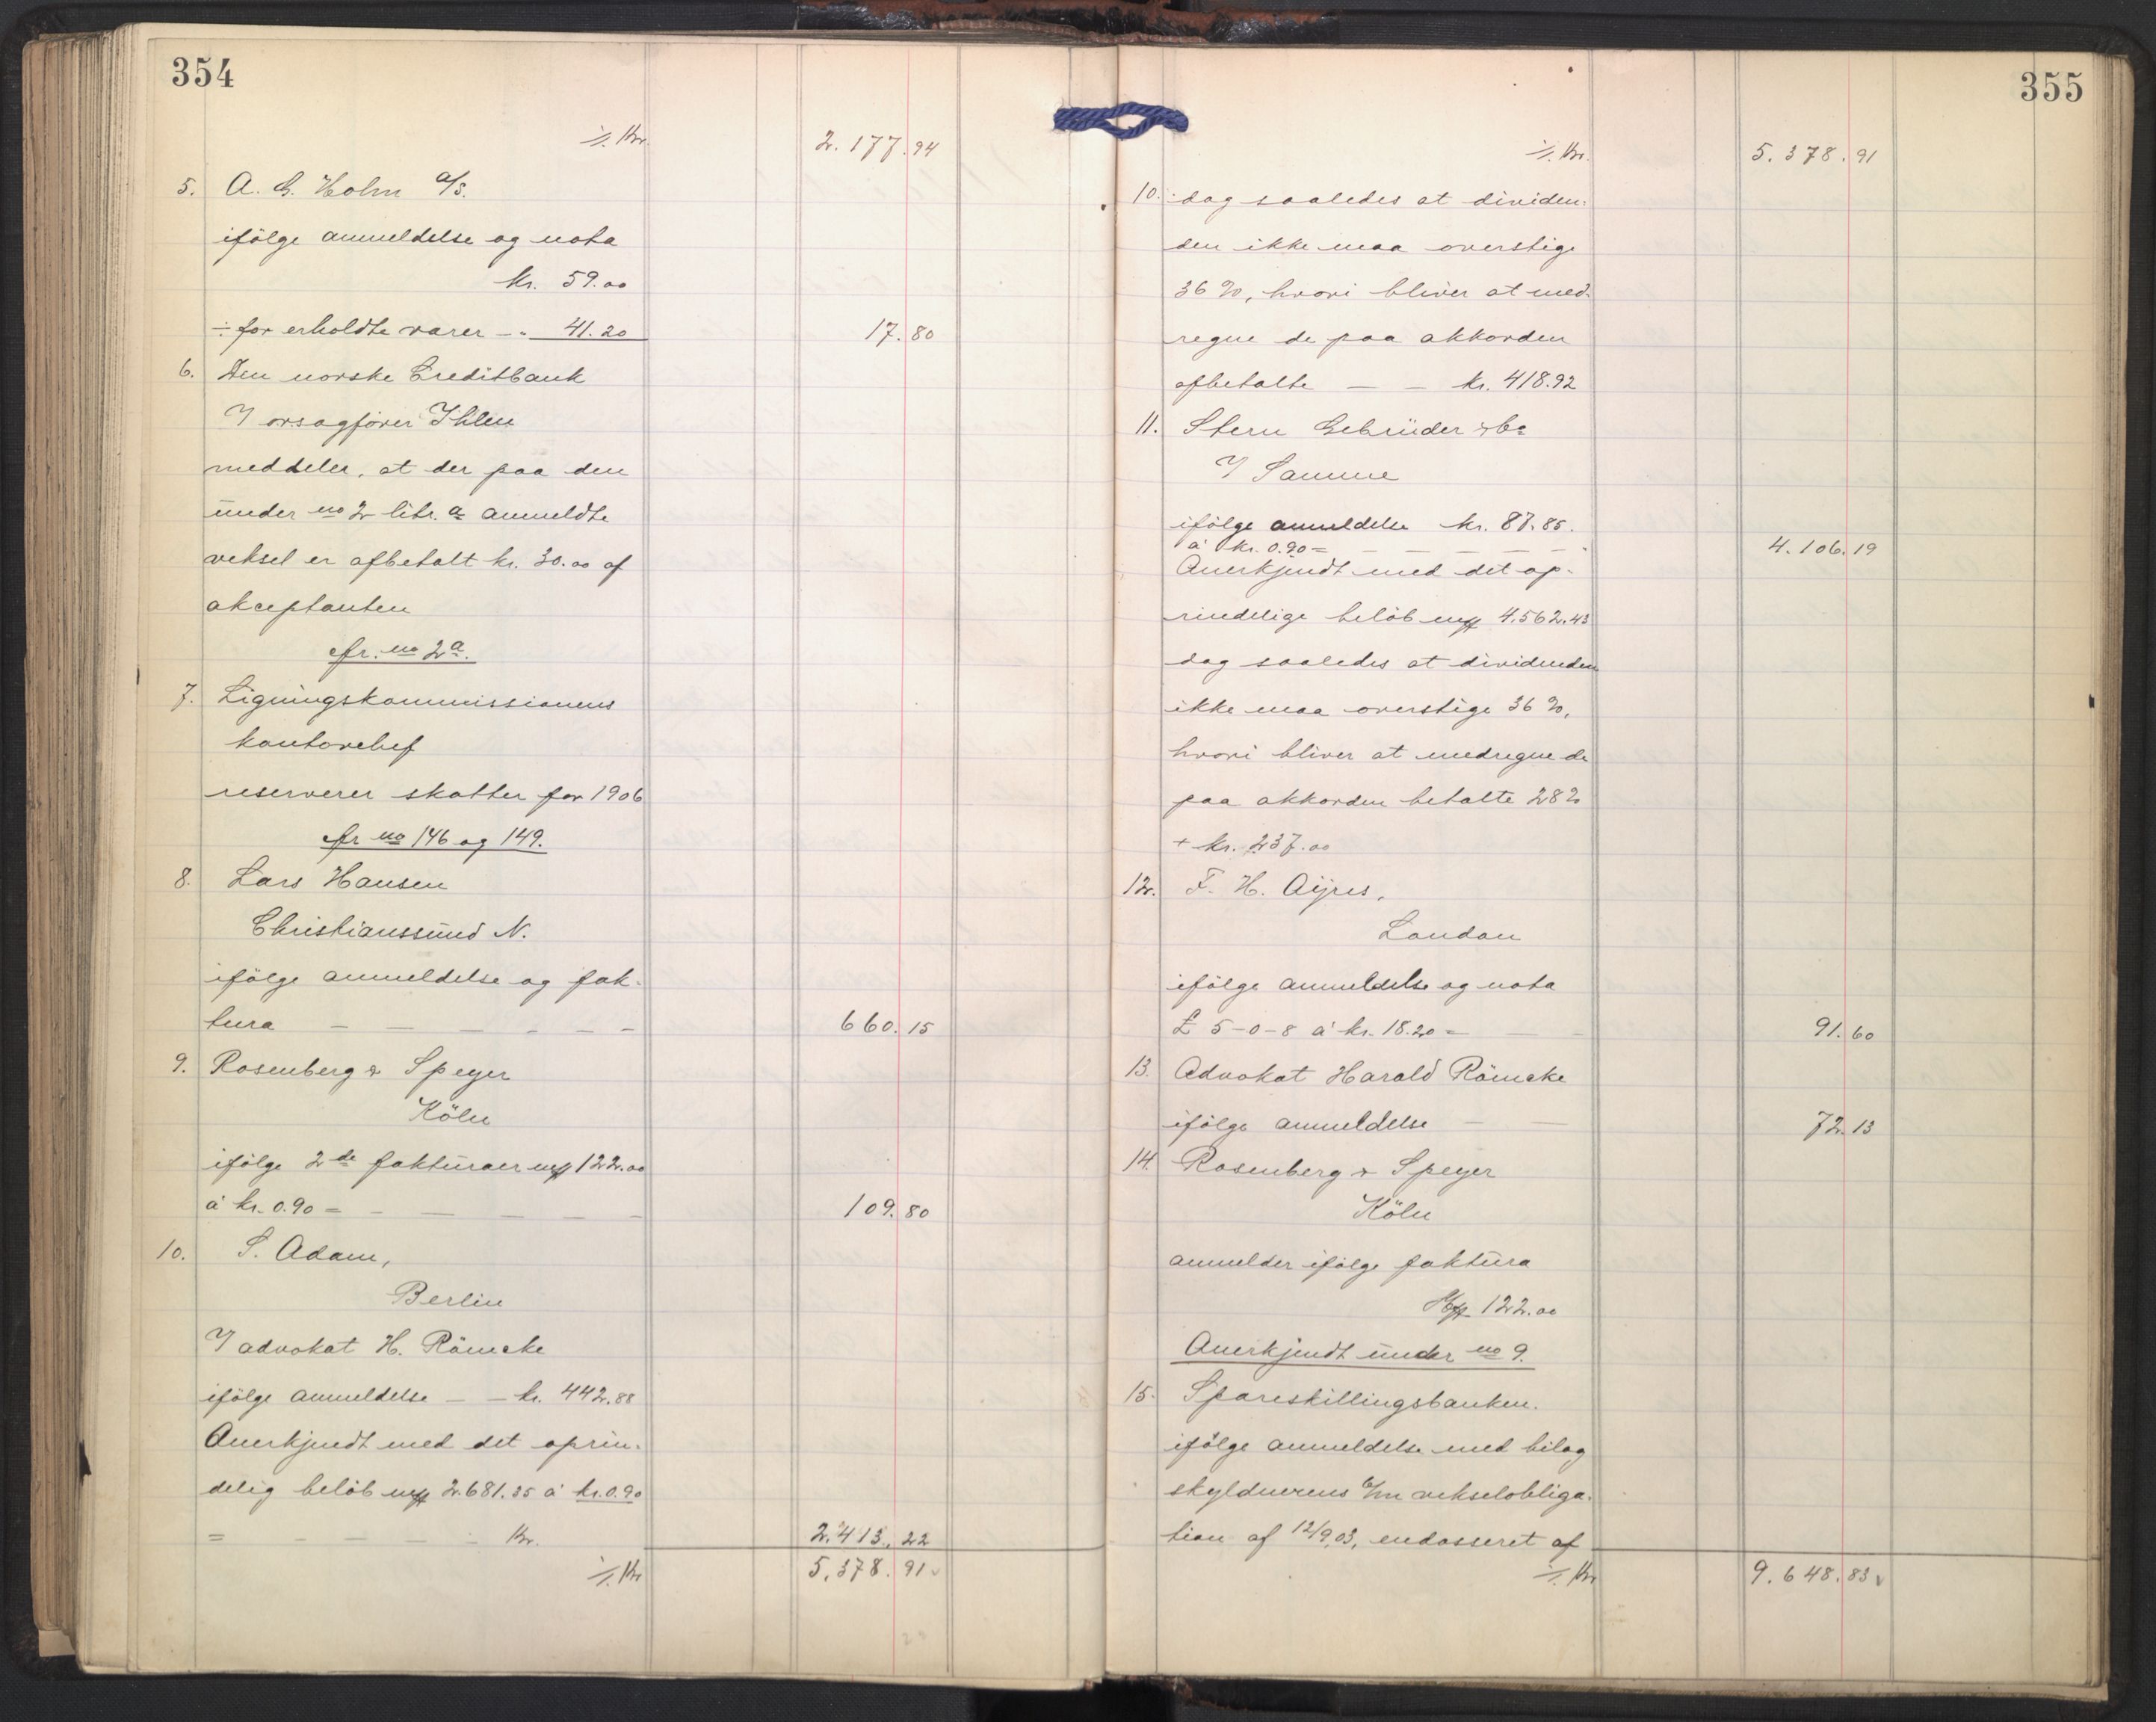 354
·/. Kr. 2.177.94
5. A. G. Holm A/S.
ifölge anmeldelse og nota
kr. 59.00
÷ for erholdte varer -"- 41.20 17.80
6. Den norske Creditbank
V orsagförer Ihlen
meddeler, at der paa den
under no 2 litr. a anmeldte
veksel er afbetalt kr. 30.00 af
akceptanten
cfr. no 2a.
7. Ligningskommissionens
kontorchef
reserverer skatter for 1906
cfr no 146 og 149.
8. Lars Hansen
Christianssund N.
ifölge anmeldelse og fak-
tura — — — — — — 660.15
9. Rosenberg & Speyer
Köln
ifölge 2de fakturaer mff 122.00
à kr. 0.90 = — — — — — 109.80
10. S. Adam,
Berlin
V advokat H. Römcke
ifölge anmeldelse — — kr. 442.88
Anerkjendt med det oprin-
delig belöb mff 2.681.35 à kr. 0.90
= — — — — Kr. 2.413.22
·/. Kr 5.378.91
355
·/. Kr. 5.378.91
10. dog saaledes at dividen-
den ikke maa overstige
36 %, hvori bliver at med-
regne de paa akkorden
afbetalte — — kr. 418.92
11. Stern Gebrüder & Co
V Samme
ifölge anmeldelse kr. 87.85.
à kr. 0.90 = — — — — — 4.106.19
Anerkjendt med det op-
rindelige belöb mff 4.562.43
dog saaledes at dividenden
ikke maa overstige 36 %,
hvori bliver at medregne de
paa akkorden betalte 28 %
+ kr. 237.00
12. F. H. Ayres,
London
ifölge anmeldelse og nota
£ 5-0-8 à kr. 18.20 = — — 91.60
13. Advokat Harald Römcke
ifölge anmeldelse — — 72.13
14. Rosenberg & Speyer
Köln
anmelder ifölge faktura
Mff 122.00
Anerkjendt under no 9.
15. Spareskillingsbanken.
ifölge anmeldelse med bilag
skyldnerens 6/m vekselobliga-
tion af 12/9.03, endosseret af
·/. Kr 9.648.83